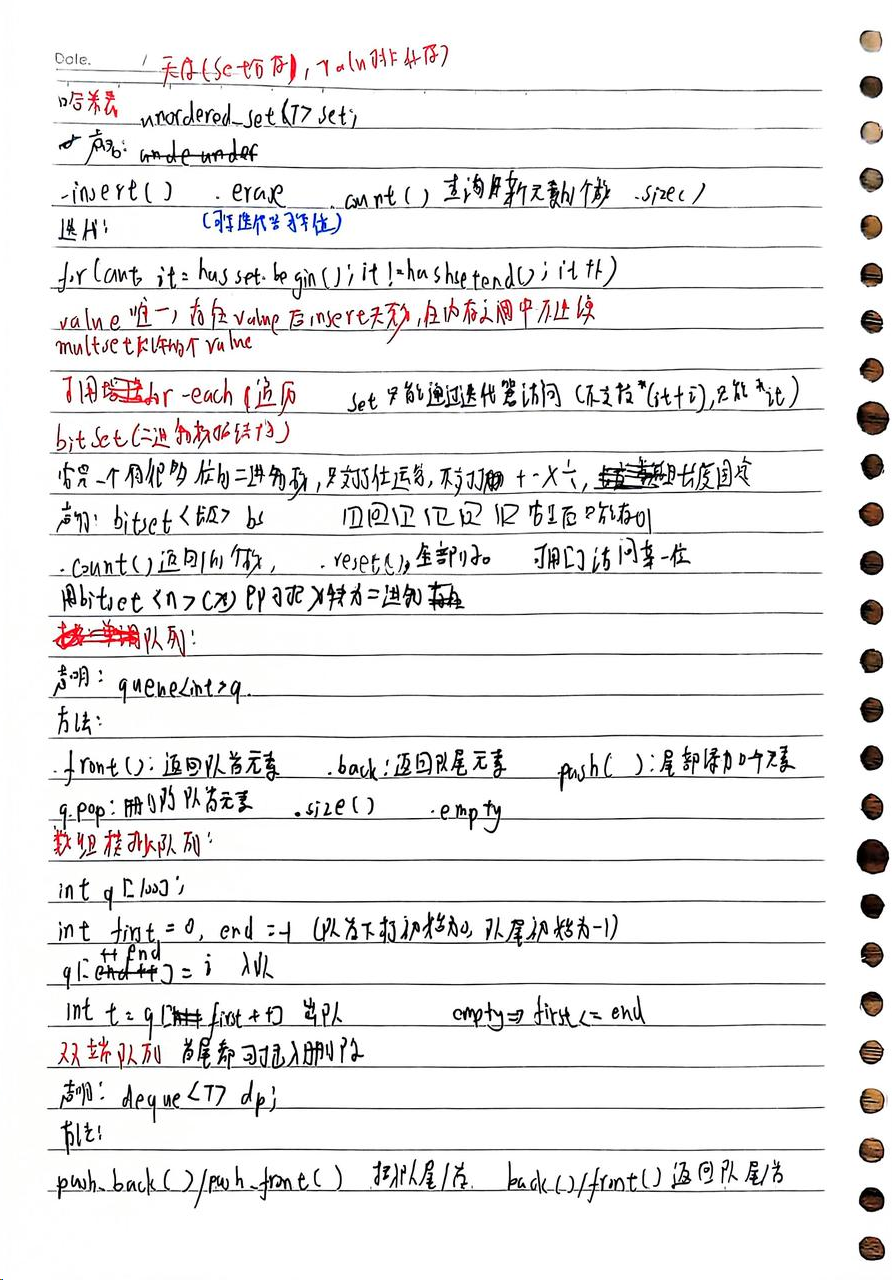 Date. /
无序(set有序),
哈希表 unordered_set<T> set;
声明: unde under
.insert() .erase .count() 查询某元素的个数 .size()
迭代:
for(auto it=hasset.begin();it!=hashsetend();it++)
value唯一,存在value后insert无效,在内存空间中不连续
multset允许多个value
可用for-each 遍历 set只能通过迭代器访问(不支持*(it+i),只能*it)
bitset(二进制数据结构)
一个有很多位的二进制数,只支持位运算,不支持用+-×÷,长度固定
声明: bitset<长度> bs
.count()返回1的个数, .reset();全部归0。 可用[]访问某一位
用bitset<n>(x)即可把x转为二进制
队列:
声明: queue<int>q.
方法:
.front():返回队首元素 .back:返回队尾元素 push( ):尾部添加一个元素
q.pop:删除队首元素 .size() .empty
数组模拟队列:
int q[100];
int first=0, end=-1 (队首下标初始为0, 队尾初始为-1)
q[++end]=i 入队
int t=q[first++] 出队 empty⇒first<=end
双端队列 首尾都可插入删除
声明: deque<T> dp;
方法:
push_back()/push_front() 插入队尾/首 back()/front()返回队尾/首